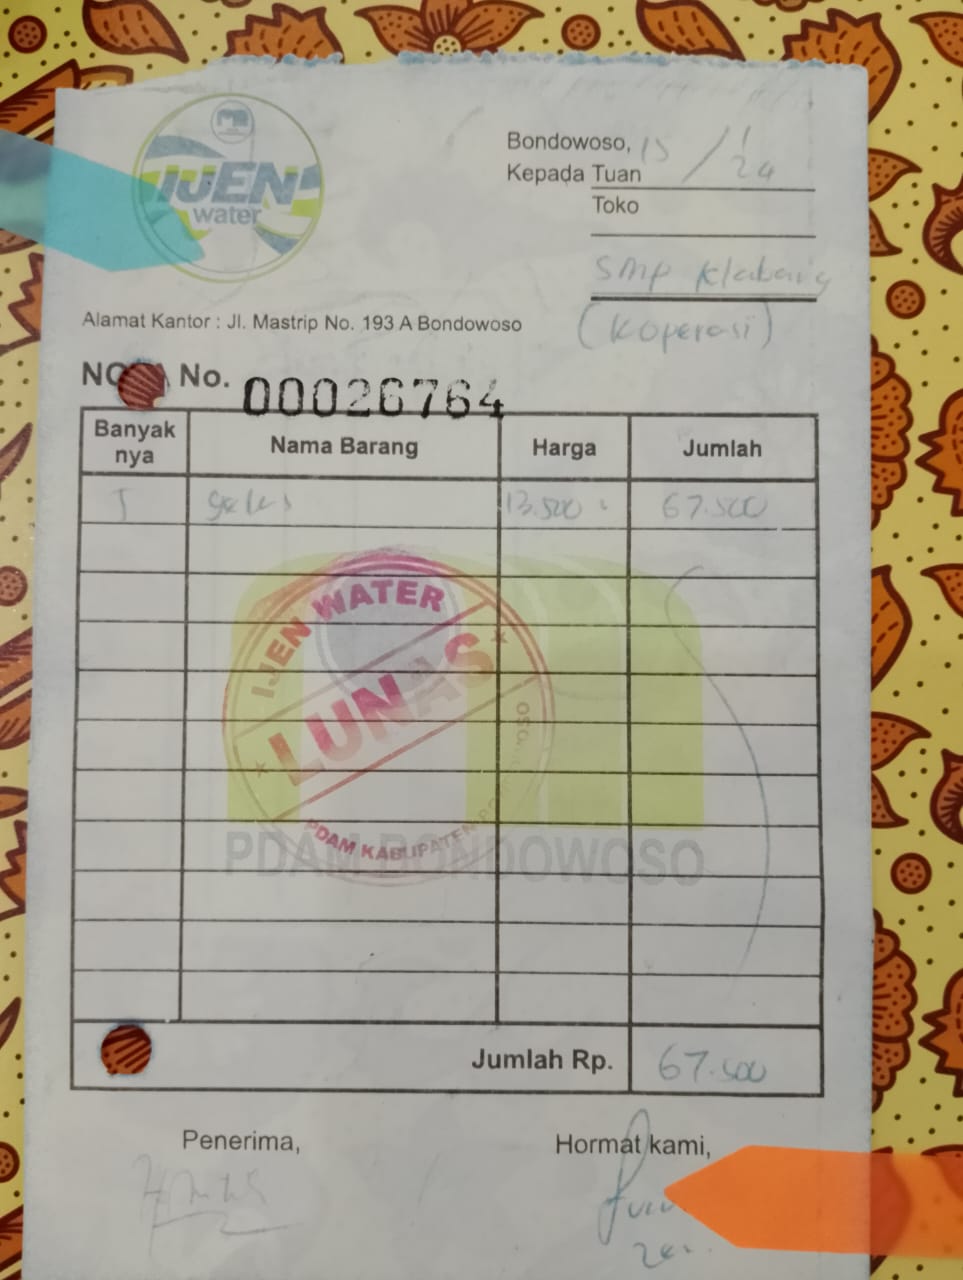 IJEN
water
Bondowoso, 15 / 1 24
Kepada Tuan
Toko
SMP Klabang
(Koperasi)
Alamat Kantor : Jl. Mastrip No. 193 A Bondowoso
NOTA No. 00026764
Banyak nya Nama Barang Harga Jumlah
5 13.500 67.500
IJEN WATER
LUNAS
PDAM KABUPATEN BONDOWOSO
PDAM BONDOWOSO
Jumlah Rp. 67.500
Penerima, Hormat kami,